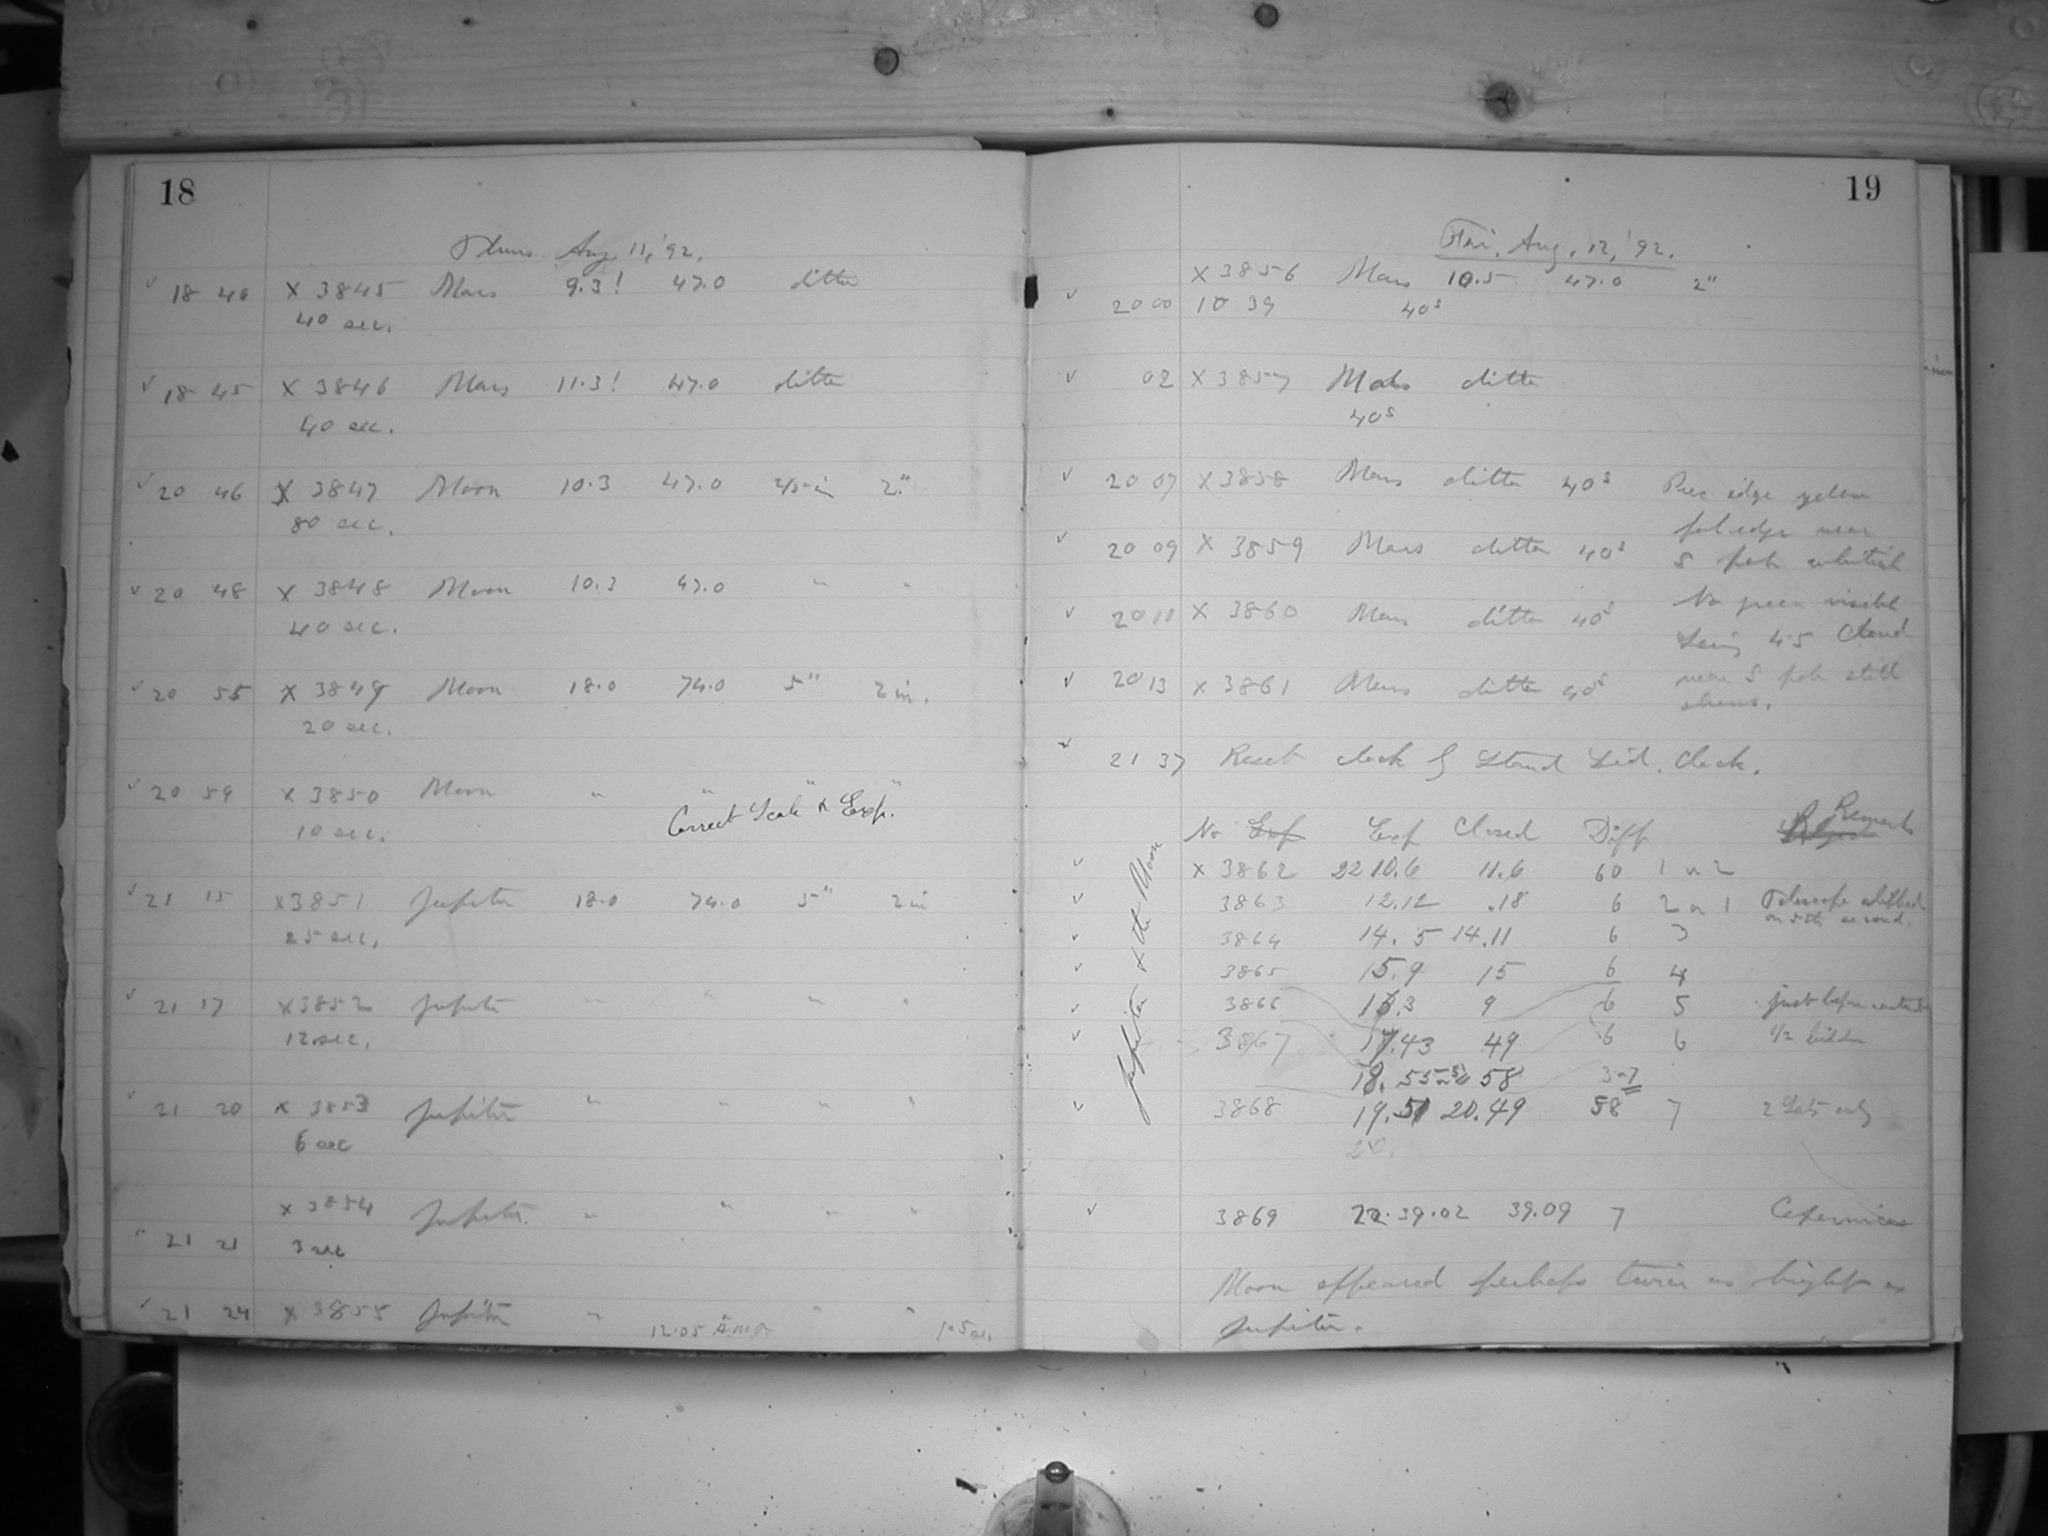 18
Thurs Aug. 11, '92.
✓ 18 40 X 3845 Mars 9.3! 47.0 ditto
40 sec.
✓ 18 45 X 3846 Mars 11.3! 47.0 ditto
40 sec.
✓ 20 46 X 3847 Moon 10.3 47.0 2"
80 sec.
✓ 20 48 X 3848 Moon 10.3 47.0 " "
40 sec.
✓ 20 55 X 3849 Moon 18.0 74.0 5" 2 in.
20 sec.
✓ 20 59 X 3850 Moon " " " "
10 sec. Correct Scale & Exp.
✓ 21 15 X 3851 Jupiter 18.0 74.0 5" 2 in
25 sec.
✓ 21 17 X 3852 Jupiter " " " "
12 sec.
✓ 21 20 X 3853 Jupiter " " " "
6 sec
X 3854 Jupiter. " " " "
21 21 3 sec
✓ 21 24 X 3855 Jupiter " " " "
12.05 1.5 sec.
19
Fri. Aug. 12, '92.
X 3856 Mars 10.5 47.0 2"
✓ 20 00 10 39 40s
✓ 02 X 3857 Mars ditto
40s
✓ 20 07 X 3858 Mars ditto 40s Prec edge yellow
fol edge near
✓ 20 09 X 3859 Mars ditto 40s S pole whitish
No green visible
✓ 20 11 X 3860 Mars ditto 40s Seeing 4.5 Cloud
near S pole still
✓ 20 13 X 3861 Mars ditto 40s shows.
21 37 Reset clock by Stand Sid. Clock.
Jupiter & the Moon
No Exp Exp Closed Diff Remarks
✓ X 3862 22 10.6 11.6 60 1 n 2
✓ 3863 12.12 .18 6 2 n 1 Telescope shifted
on 5th second.
✓ 3864 14. 5 14.11 6 3
✓ 3865 15.9 15 6 4
✓ 3866 3 9 6 5 just before contact
✓ 3867 17.43 49 6 6 1/2 hidden
18. 55 58 3 7
✓ 3868 19.51 20.49 58 7 2 Sats only
20.
✓ 3869 22.39.02 39.09 7 Copernicus
Moon appeared perhaps twice as bright as
Jupiter.